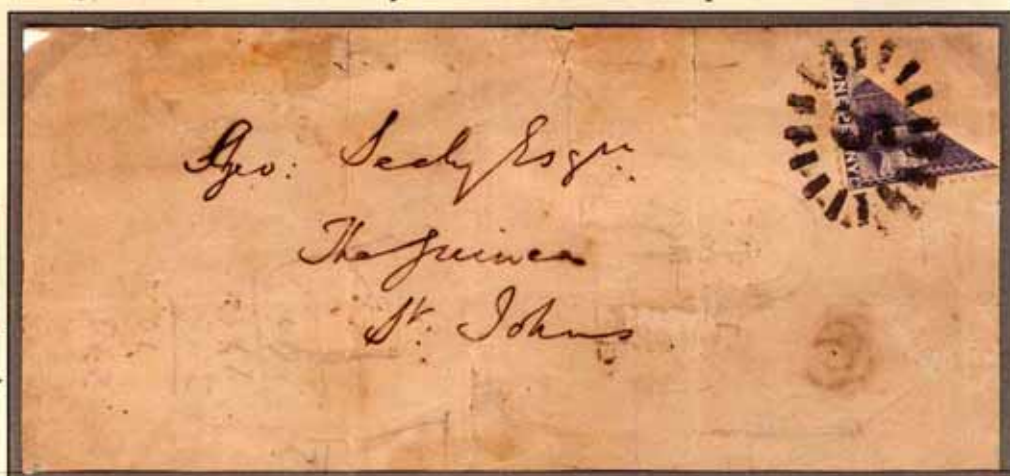 Geo: Sealy Esqre.
The Guinea
St. Johns
ONE PENNY